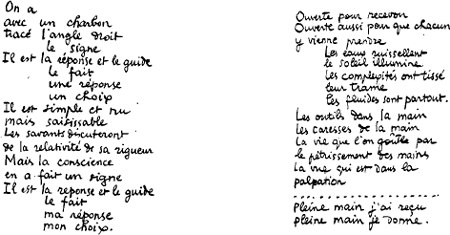 On a
avec un charbon
tracé l'angle droit
le signe
Il est la réponse et le guide
le fait
une réponse
un choix
Il est simple et nu
mais saisissable
Les savants discuteront
de la relativité de sa rigueur
Mais la conscience
en a fait un signe
Il est la réponse et le guide
le fait
ma réponse
mon choix.
Ouverte pour recevoir
Ouverte aussi pour que chacun
y vienne prendre
Les eaux ruissellent
le soleil illumine
Les complexités ont tissé
leur trame
les fluides sont partout.
Les outils dans la main
Les caresses de la main
La vie que l'on goûte par
le pétrissement des mains
La vue qui est dans la
palpation
Pleine main j'ai reçu
pleine main je donne.